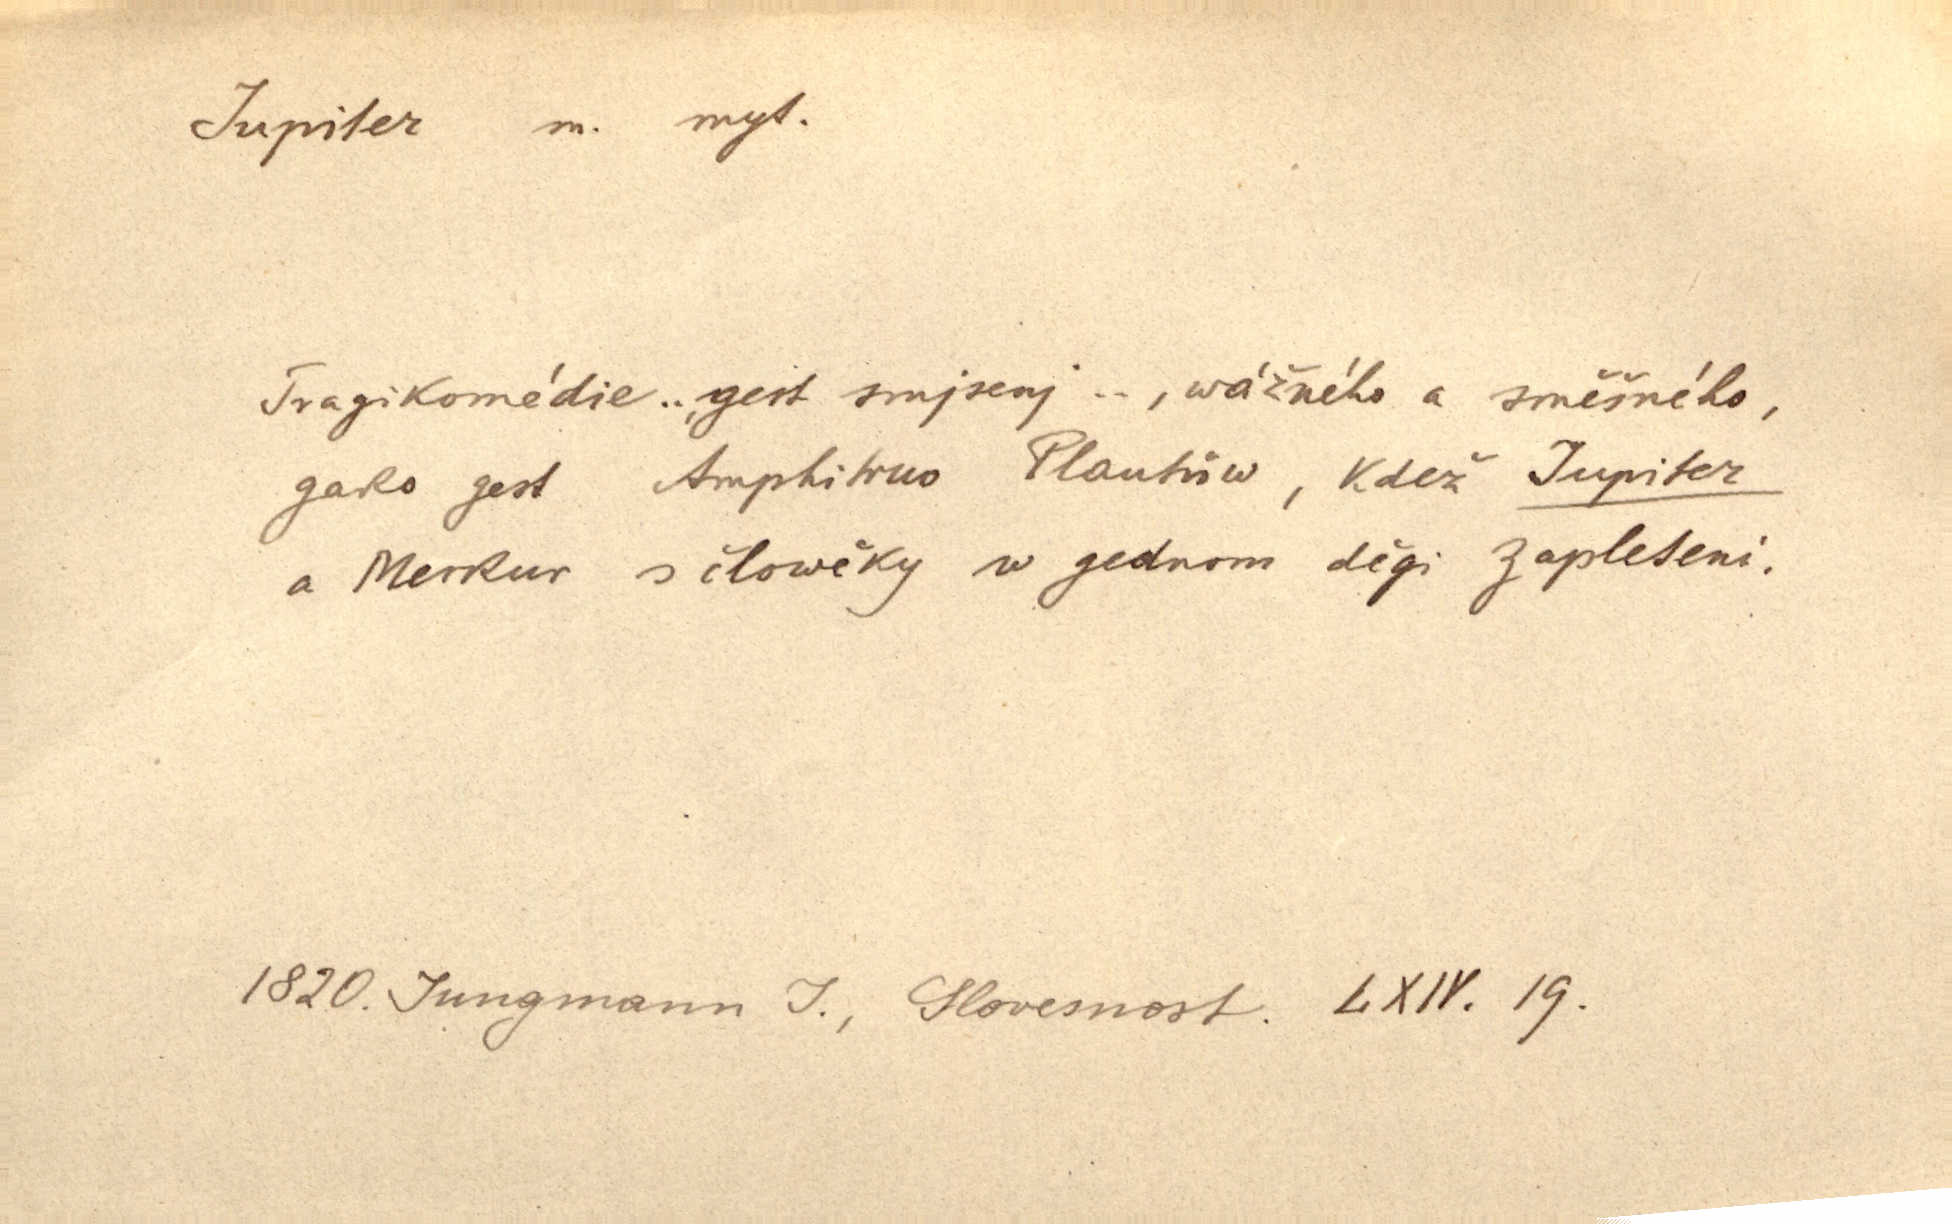 Jupiter m. myt.
Tragikomédie .., gest smjsenj .., wážného a směšného,
gako gest Amphitruo Plautůw, kdež Jupiter
a Merkur s člowěky w gednom děgi zapleteni.
1820. Jungmann J., Slovesnost. LXIV. 19.